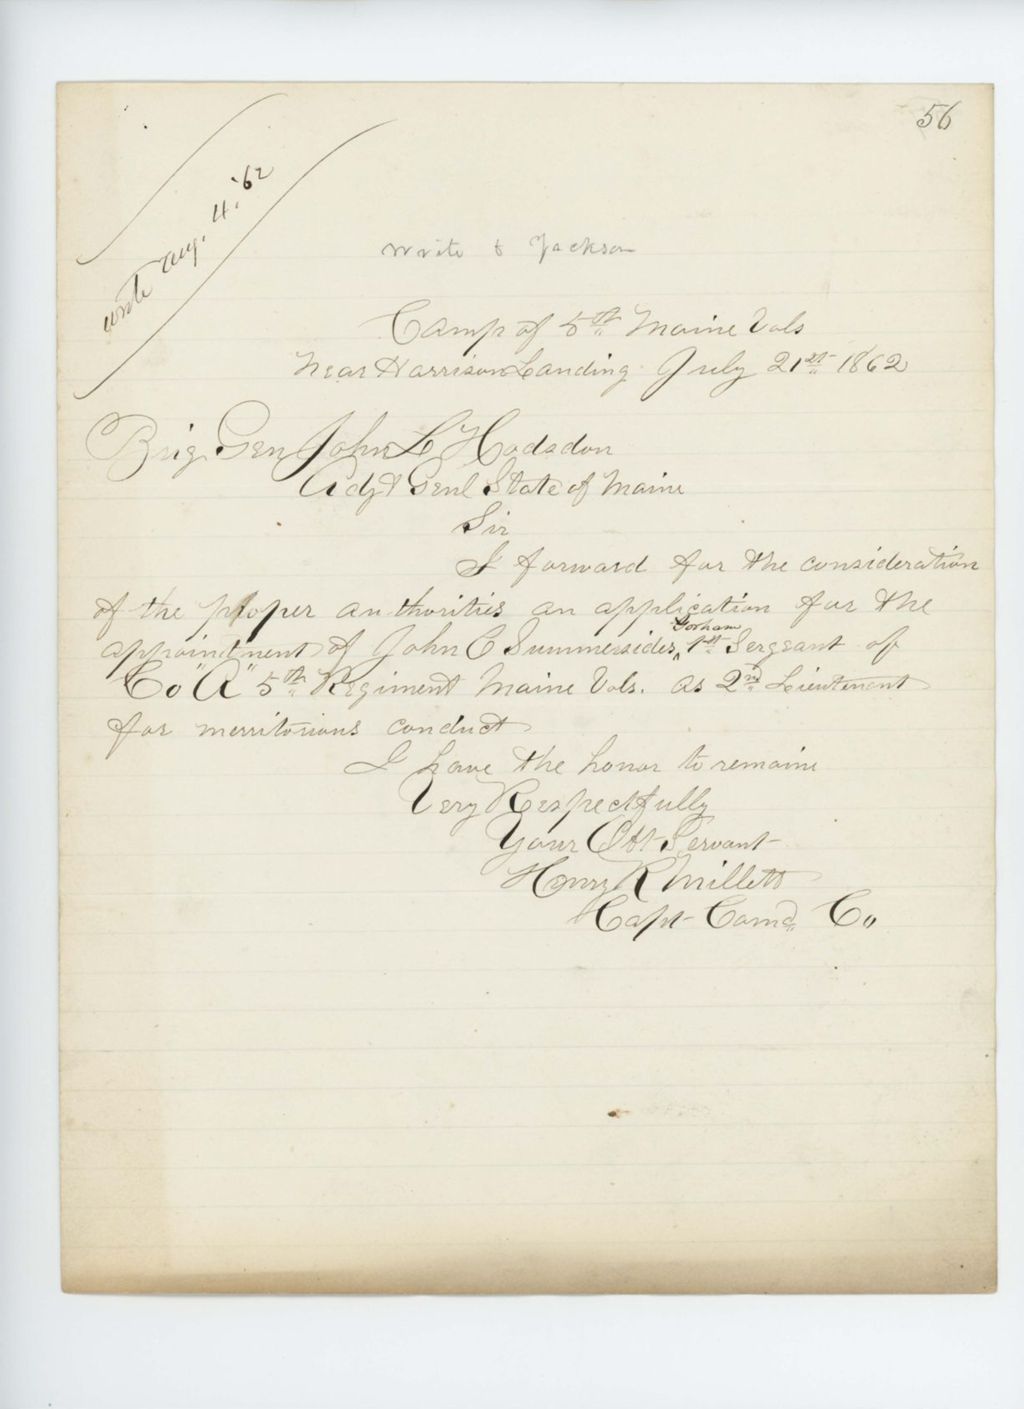 56
wrote Aug. 4. '62
write to Jackson
Camp of 5th Maine Vols
Near Harrison Landing July 21st 1862
Brig. Gen John L Hodsdon
Adjt Genl State of Maine
Sir
I forward for the consideration
of the proper authorities an application for the
appointment of John C Summersides, Gorham 1st Sergeant of
Co "A" 5th Regiment Maine Vols. as 2nd Lieutenant
for merritorious conduct
I have the honor to remain
Very Respectfully
Your Obt Servant
Henry R Millett
Capt Comd Co